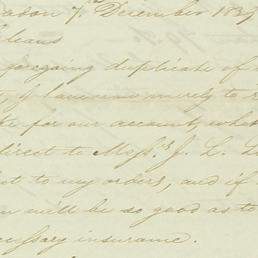 7th December 183
leans
forgoing duplicate of
merely to
for our account, whe
direct to Messrs J. L. L
to my order, and if
will be so good as to
cessary insurance.